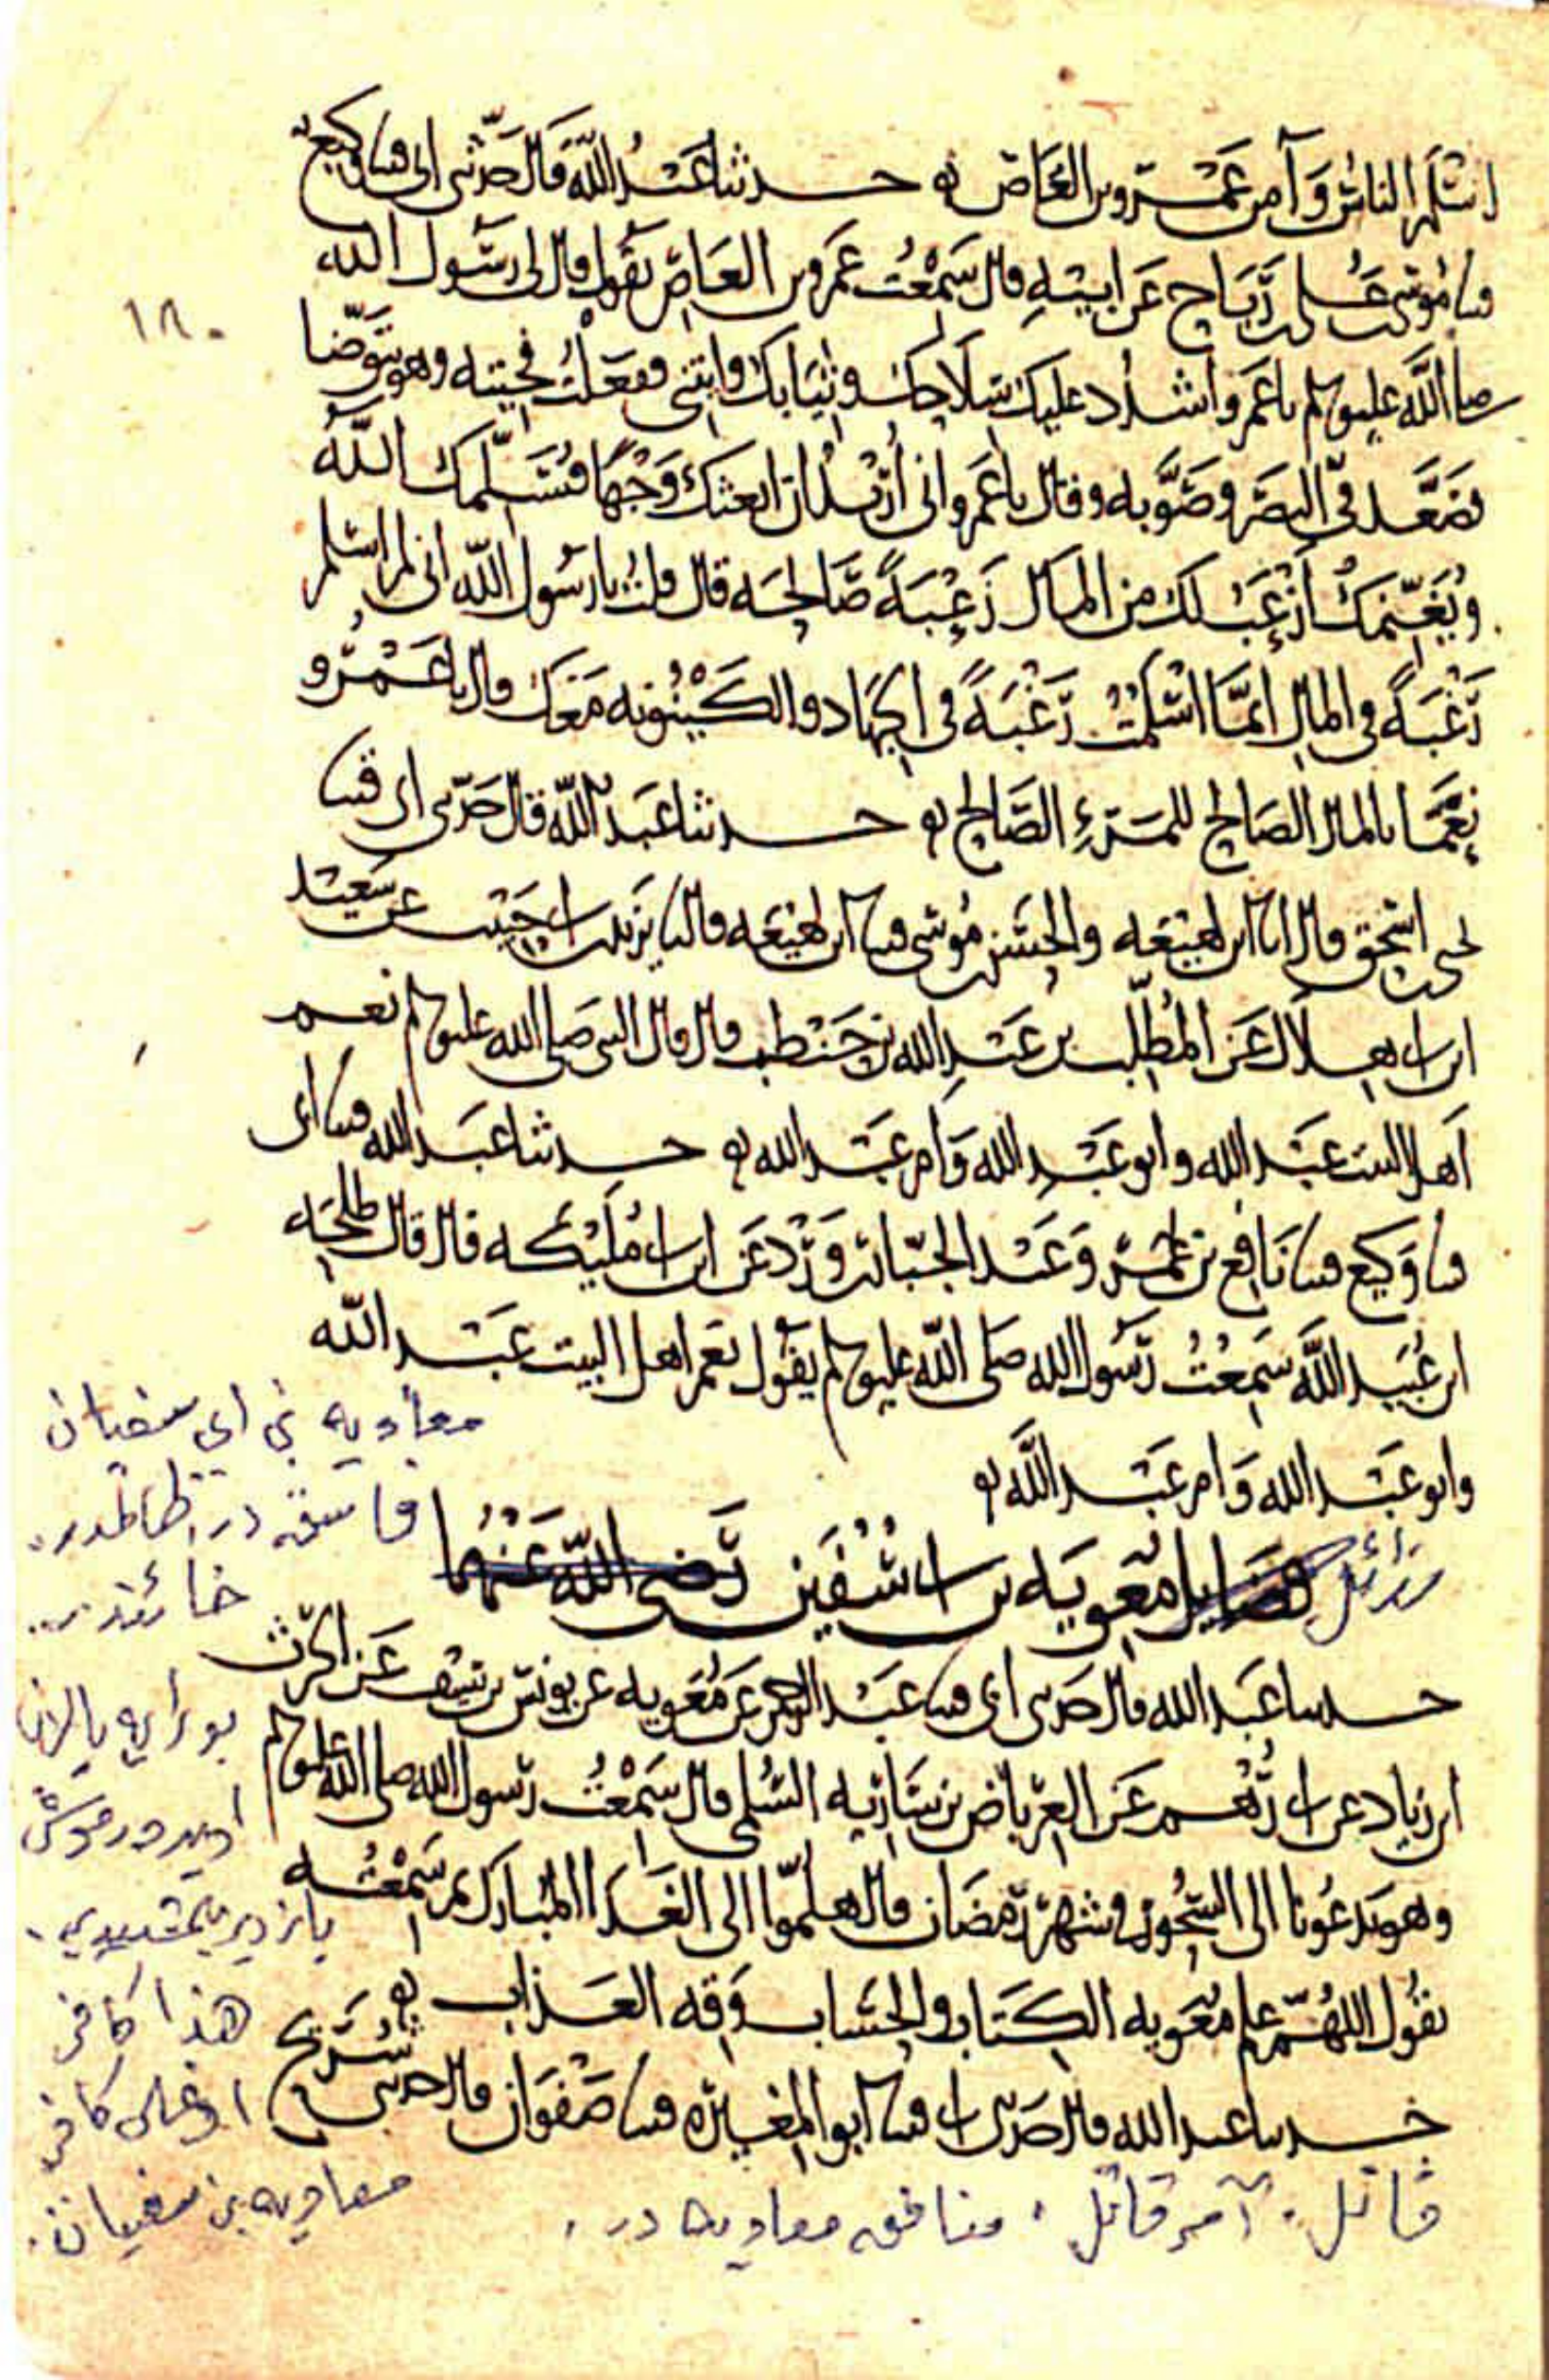 اسلم الناس وآمن عمرو بن العاص حدثنا عبد الله قال حدثني ابي قثنا وكيع
قثنا موسى بن علي بن رباح عن ابيه قال سمعت عمرو بن العاص يقول قال لي رسول الله
صلى الله عليه وسلم يا عمرو اشدد عليك سلاحك وثيابك وايتني ففعلت فجيته وهو يتوضا
١٨٠
فصعد في البصر وصوبه وقال يا عمرو اني اريد ان ابعثك وجها فيسلمك الله
ويغنمك ازعب لك من المال زعبة صالحة قال قلت يا رسول الله اني لم اسلم
رغبة في المال انما اسلمت رغبة في الجهاد والكينونه معك قال يا عمرو
نعما بالمال الصالح للمرء الصالح حدثنا عبد الله قال حدثني ابي قثنا
يحيى بن اسحق قال انا ابن لهيعه والحسن بن موسى قثنا ابن لهيعه قال نا يزيد بن ابي حبيب عن سعيد
ابن ابي هلال عن المطلب بن عبد الله بن حنطب قال قال النبي صلى الله عليه وسلم نعم
اهل البيت عبد الله وابو عبد الله وام عبد الله حدثنا عبد الله قثنا ابي
قثنا وكيع قثنا نافع بن عمر وعبد الجبار بن ورد عن ابن ابي مليكه قال قال طلحه
ابن عبيد الله سمعت رسول الله صلى الله عليه وسلم يقول نعم اهل البيت عبد الله
وابو عبد الله وام عبد الله
رذائل فضايل معويه بن ابي سفين رضي الله عنهما
حدثنا عبد الله قال حدثني ابي قثنا عبد الرحمن عن معويه عن يونس بن سيف عن الحرث
ابن زياد عن ابي رهم عن العرباض بن ساريه السلمي قال سمعت رسول الله صلى الله عليه وسلم
وهو يدعونا الى السحور في شهر رمضان قال هلموا الى الغدا المبارك ثم سمعته
يقول اللهم علم معويه الكتاب والحساب وقه العذاب
حدثنا عبد الله قال حدثني ابي قثنا ابو المغيره قثنا صفوان قال حدثني شريح
معاويه بن ابي سفيان
فاسق در. ظالمدر.
خائندر..
بو رايه يالان
اويدورموش
يازدير
هذا كافر
اوغلى كافر
معاويه بن سفيان.
قاتل. آمر قاتل. منافق معاويه در.